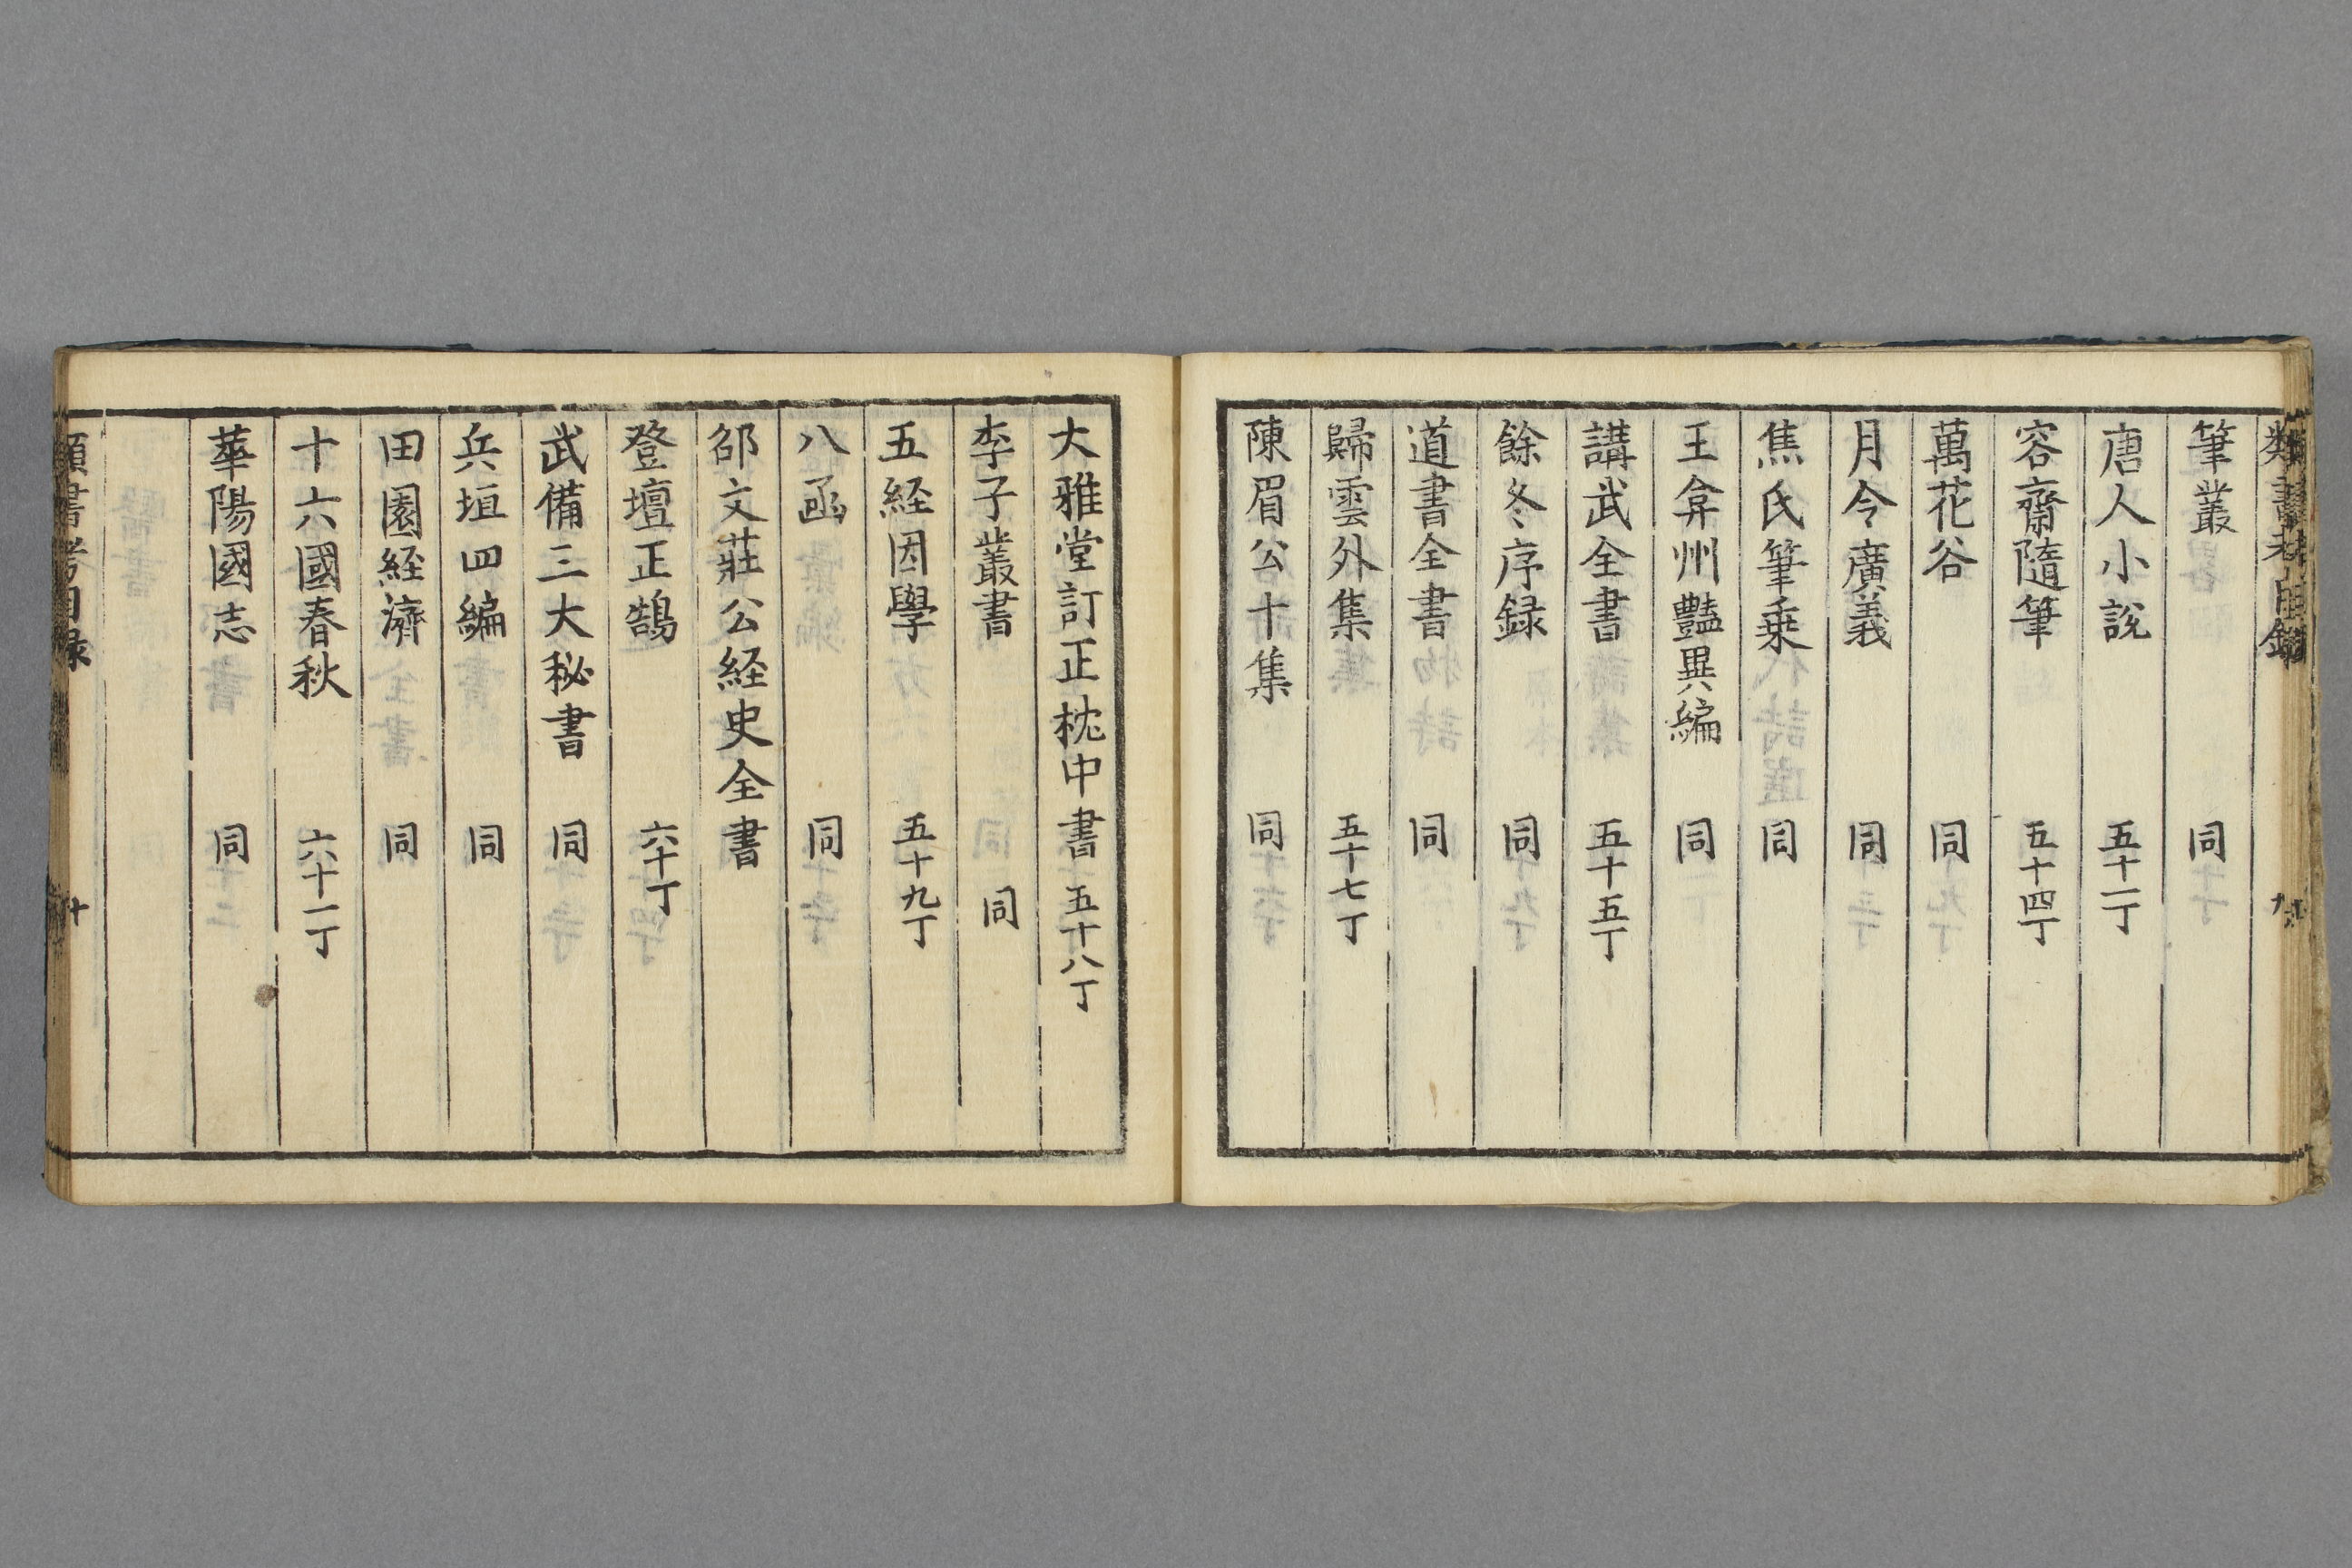 筆叢　同
唐人小說　五十二丁
容齋隨筆　五十四丁
萬花谷　同
月令廣義　同
焦氏筆乗　同
王弇州豔異編　同
講武全書　五十五丁
餘冬序録　同
道書全書　同
歸雲外集　五十七丁
陳眉公十集　同
大雅堂訂正枕中書　五十八丁
李子叢書　同
五経困學　五十九丁
八函　同
邵文莊公経史全書
登壇正鵠　六十丁
武備三大秘書　同
兵垣四編　同
田園経濟　同
十六國春秋　六十一丁
華陽國志　同
類書考目録　十